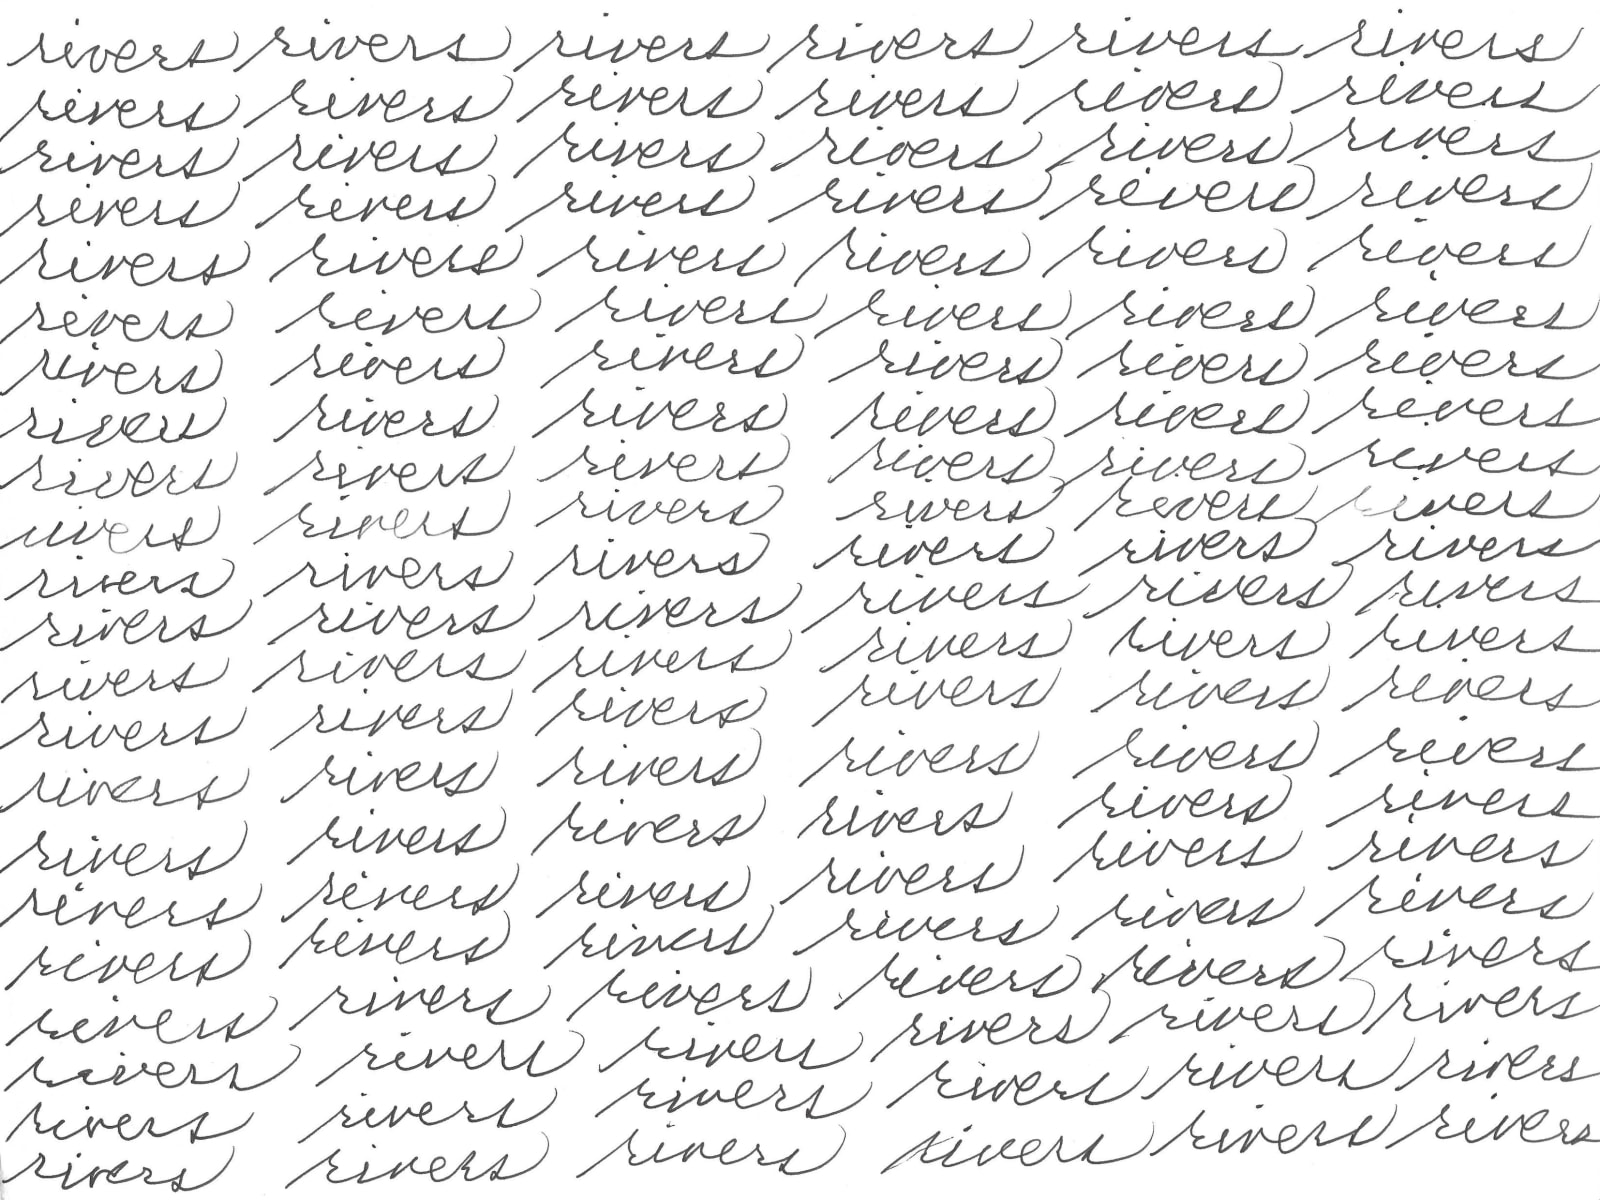 rivers rivers rivers rivers rivers rivers
rivers rivers rivers rivers rivers rivers
rivers rivers rivers rivers rivers rivers
rivers rivers rivers rivers rivers rivers
rivers rivers rivers rivers rivers rivers
rivers rivers rivers rivers rivers rivers
rivers rivers rivers rivers rivers rivers
rivers rivers rivers rivers rivers rivers
rivers rivers rivers rivers rivers rivers
rivers rivers rivers rivers rivers rivers
rivers rivers rivers rivers rivers rivers
rivers rivers rivers rivers rivers rivers
rivers rivers rivers rivers rivers rivers
rivers rivers rivers rivers rivers rivers
rivers rivers rivers rivers rivers rivers
rivers rivers rivers rivers rivers rivers
rivers rivers rivers rivers rivers rivers
rivers rivers rivers rivers rivers rivers
rivers rivers rivers rivers rivers rivers
rivers rivers rivers rivers rivers rivers
rivers rivers rivers rivers rivers rivers
rivers rivers rivers rivers rivers rivers